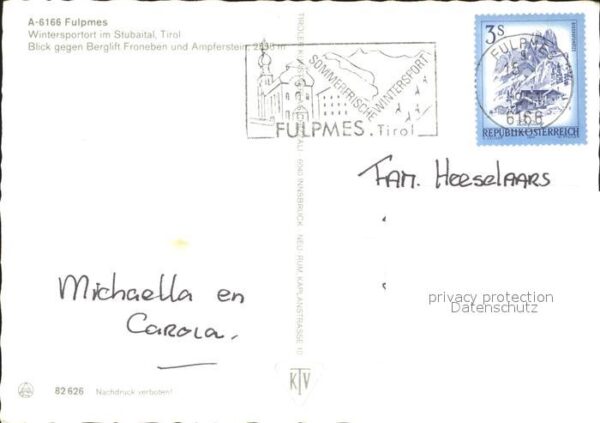 A-6166 Fulpmes
Wintersportort im Stubaital, Tirol
Blick gegen Berglift Froneben und Ampferstein
SOMMERFRISCHE
WINTERSPORT
FULPMES.Tirol
3S
FULPMES
6166
REPUBLIK ÖSTERREICH
FAM. Heeselaars
Michaella en
Carola.
privacy protection
Datenschutz
6040 INNSBRUCK, NEU RUM, KAPLANSTRASSE
KTV
82626 Nachdruck verboten!